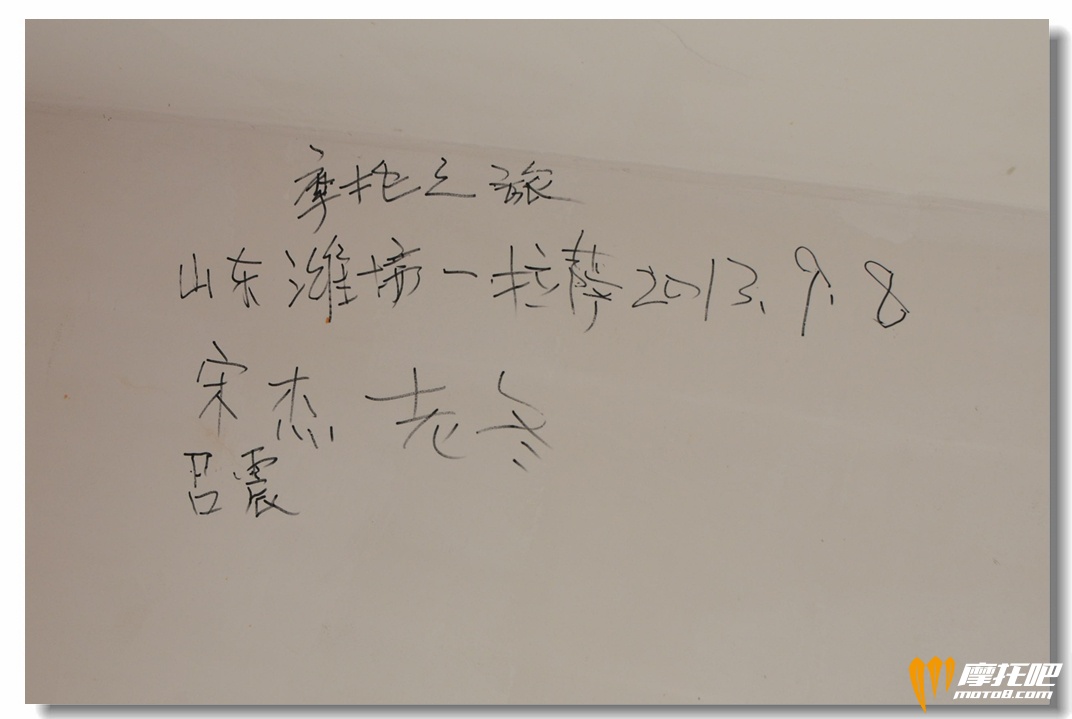 摩托之旅
山东潍坊一拉萨2013.9.8
宋杰 老冬
吕震
摩托吧
MOTO8.COM